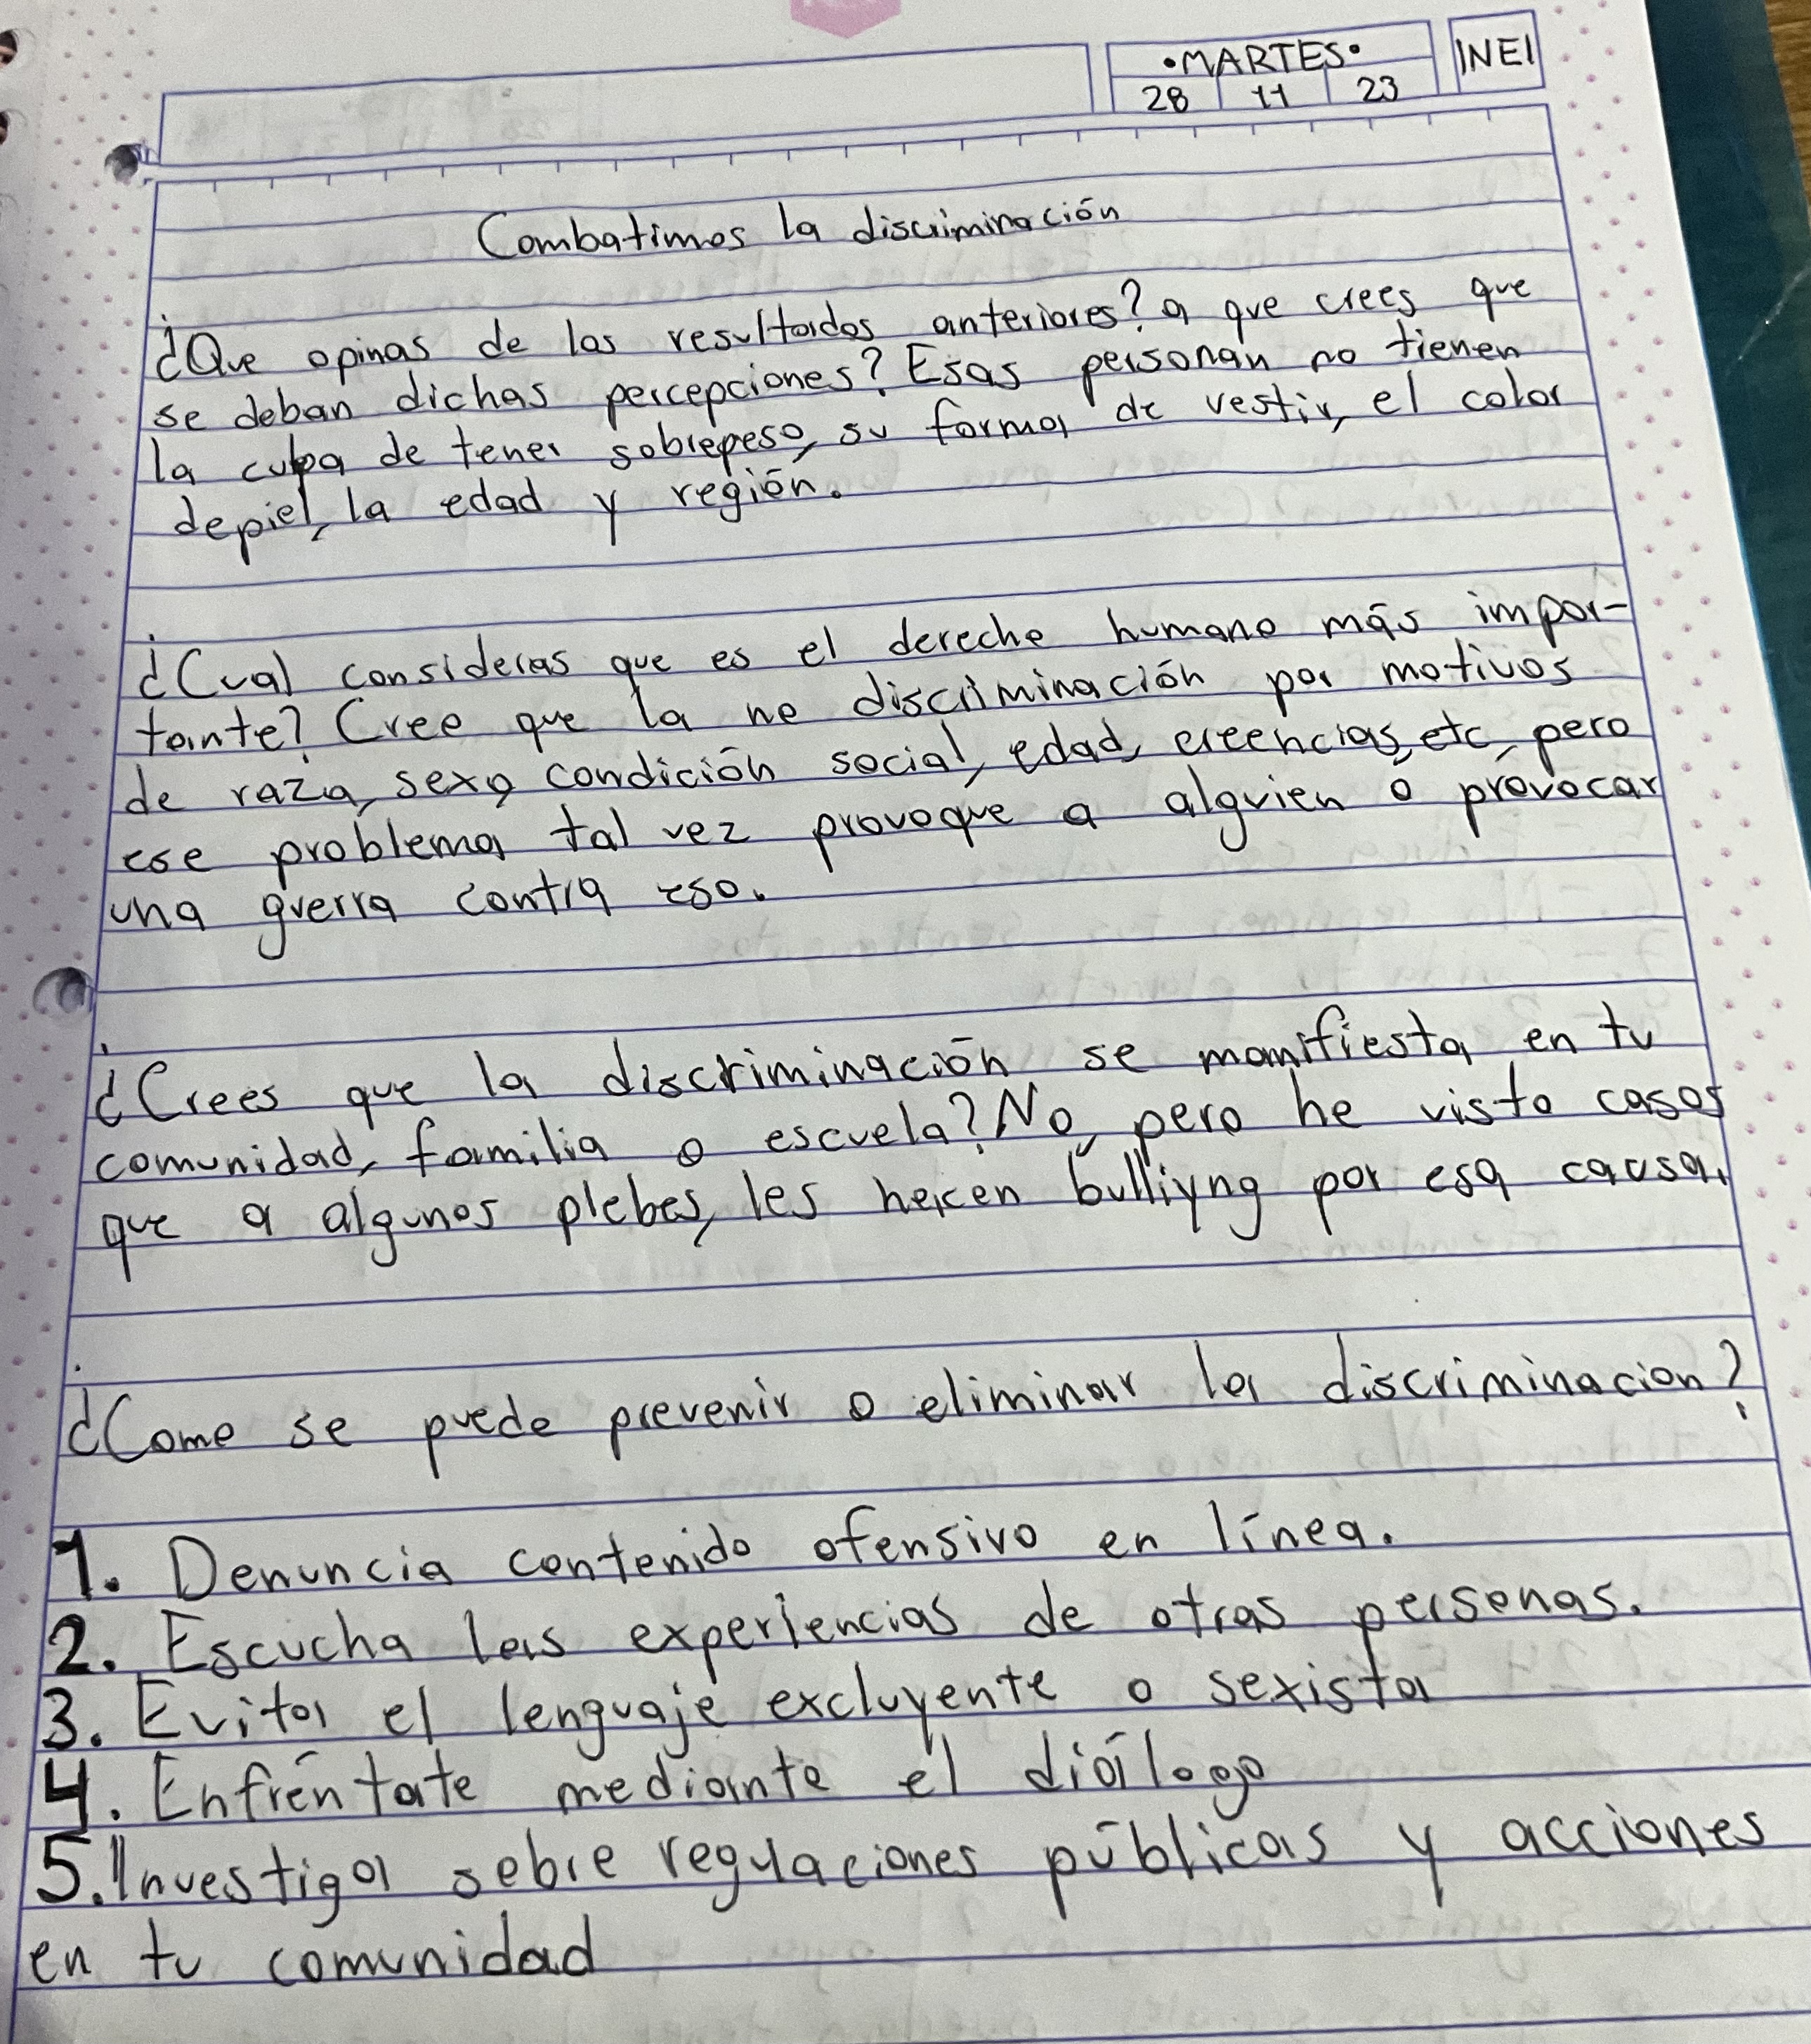 •MARTES•
INEI
28 11 23
Combatimos la discriminación
¿Que opinas de los resultados anteriores? a que crees que
se deban dichas percepciones? Esas personan no tienen
la culpa de tener sobrepeso, su forma de vestir, el color
depiel, la edad y región.
¿Cual consideras que es el dereche humano más impor-
tante? Cree que la no discriminación por motivos
de raza, sexo, condición social, edad, creencias, etc, pero
ese problema tal vez provoque a alguien o provocar
una guerra contra eso.
¿Crees que la discriminación se manifiesta en tu
comunidad, familia o escuela? No, pero he visto casos
que a algunos plebes, les hacen bulliyng por esa causa.
¿Como se puede prevenir o eliminar la discriminacion?
1. Denuncia contenido ofensivo en línea.
2. Escucha las experiencias de otras personas.
3. Evita el lenguaje excluyente o sexista
4. Enfréntate mediante el diálogo
5. Investiga sobre regulaciones públicas y acciones
en tu comunidad